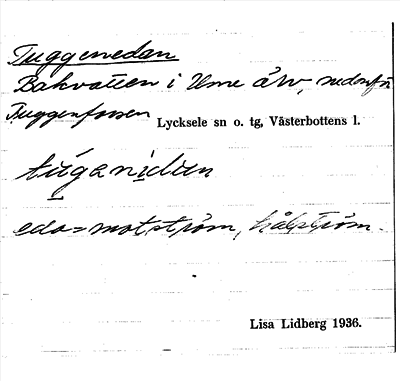 Tuggenedan
Bakvatten i Ume älv, nedanför
Tuggenforsen Lycksele sn o. tg, Västerbottens l.
túganidan
eda = motström, hålström.
Lisa Lidberg 1936.